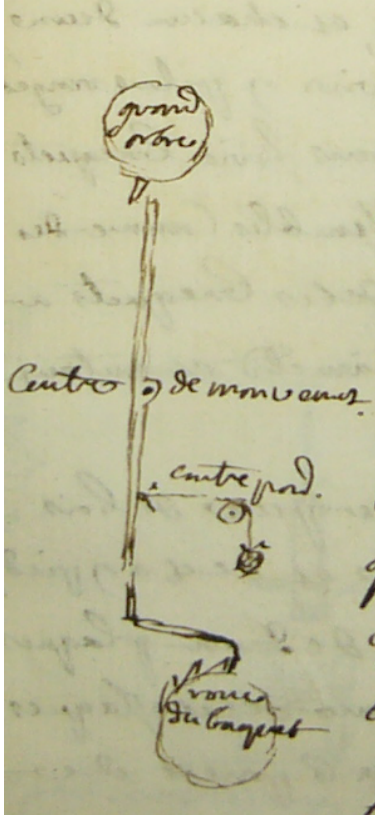 grand
arbre
Centre de mouvement.
contrepoid.
roue
du baquet